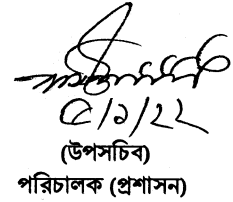 ৫/১/২২
(উপসচিব)
পরিচালক (প্রশাসন)